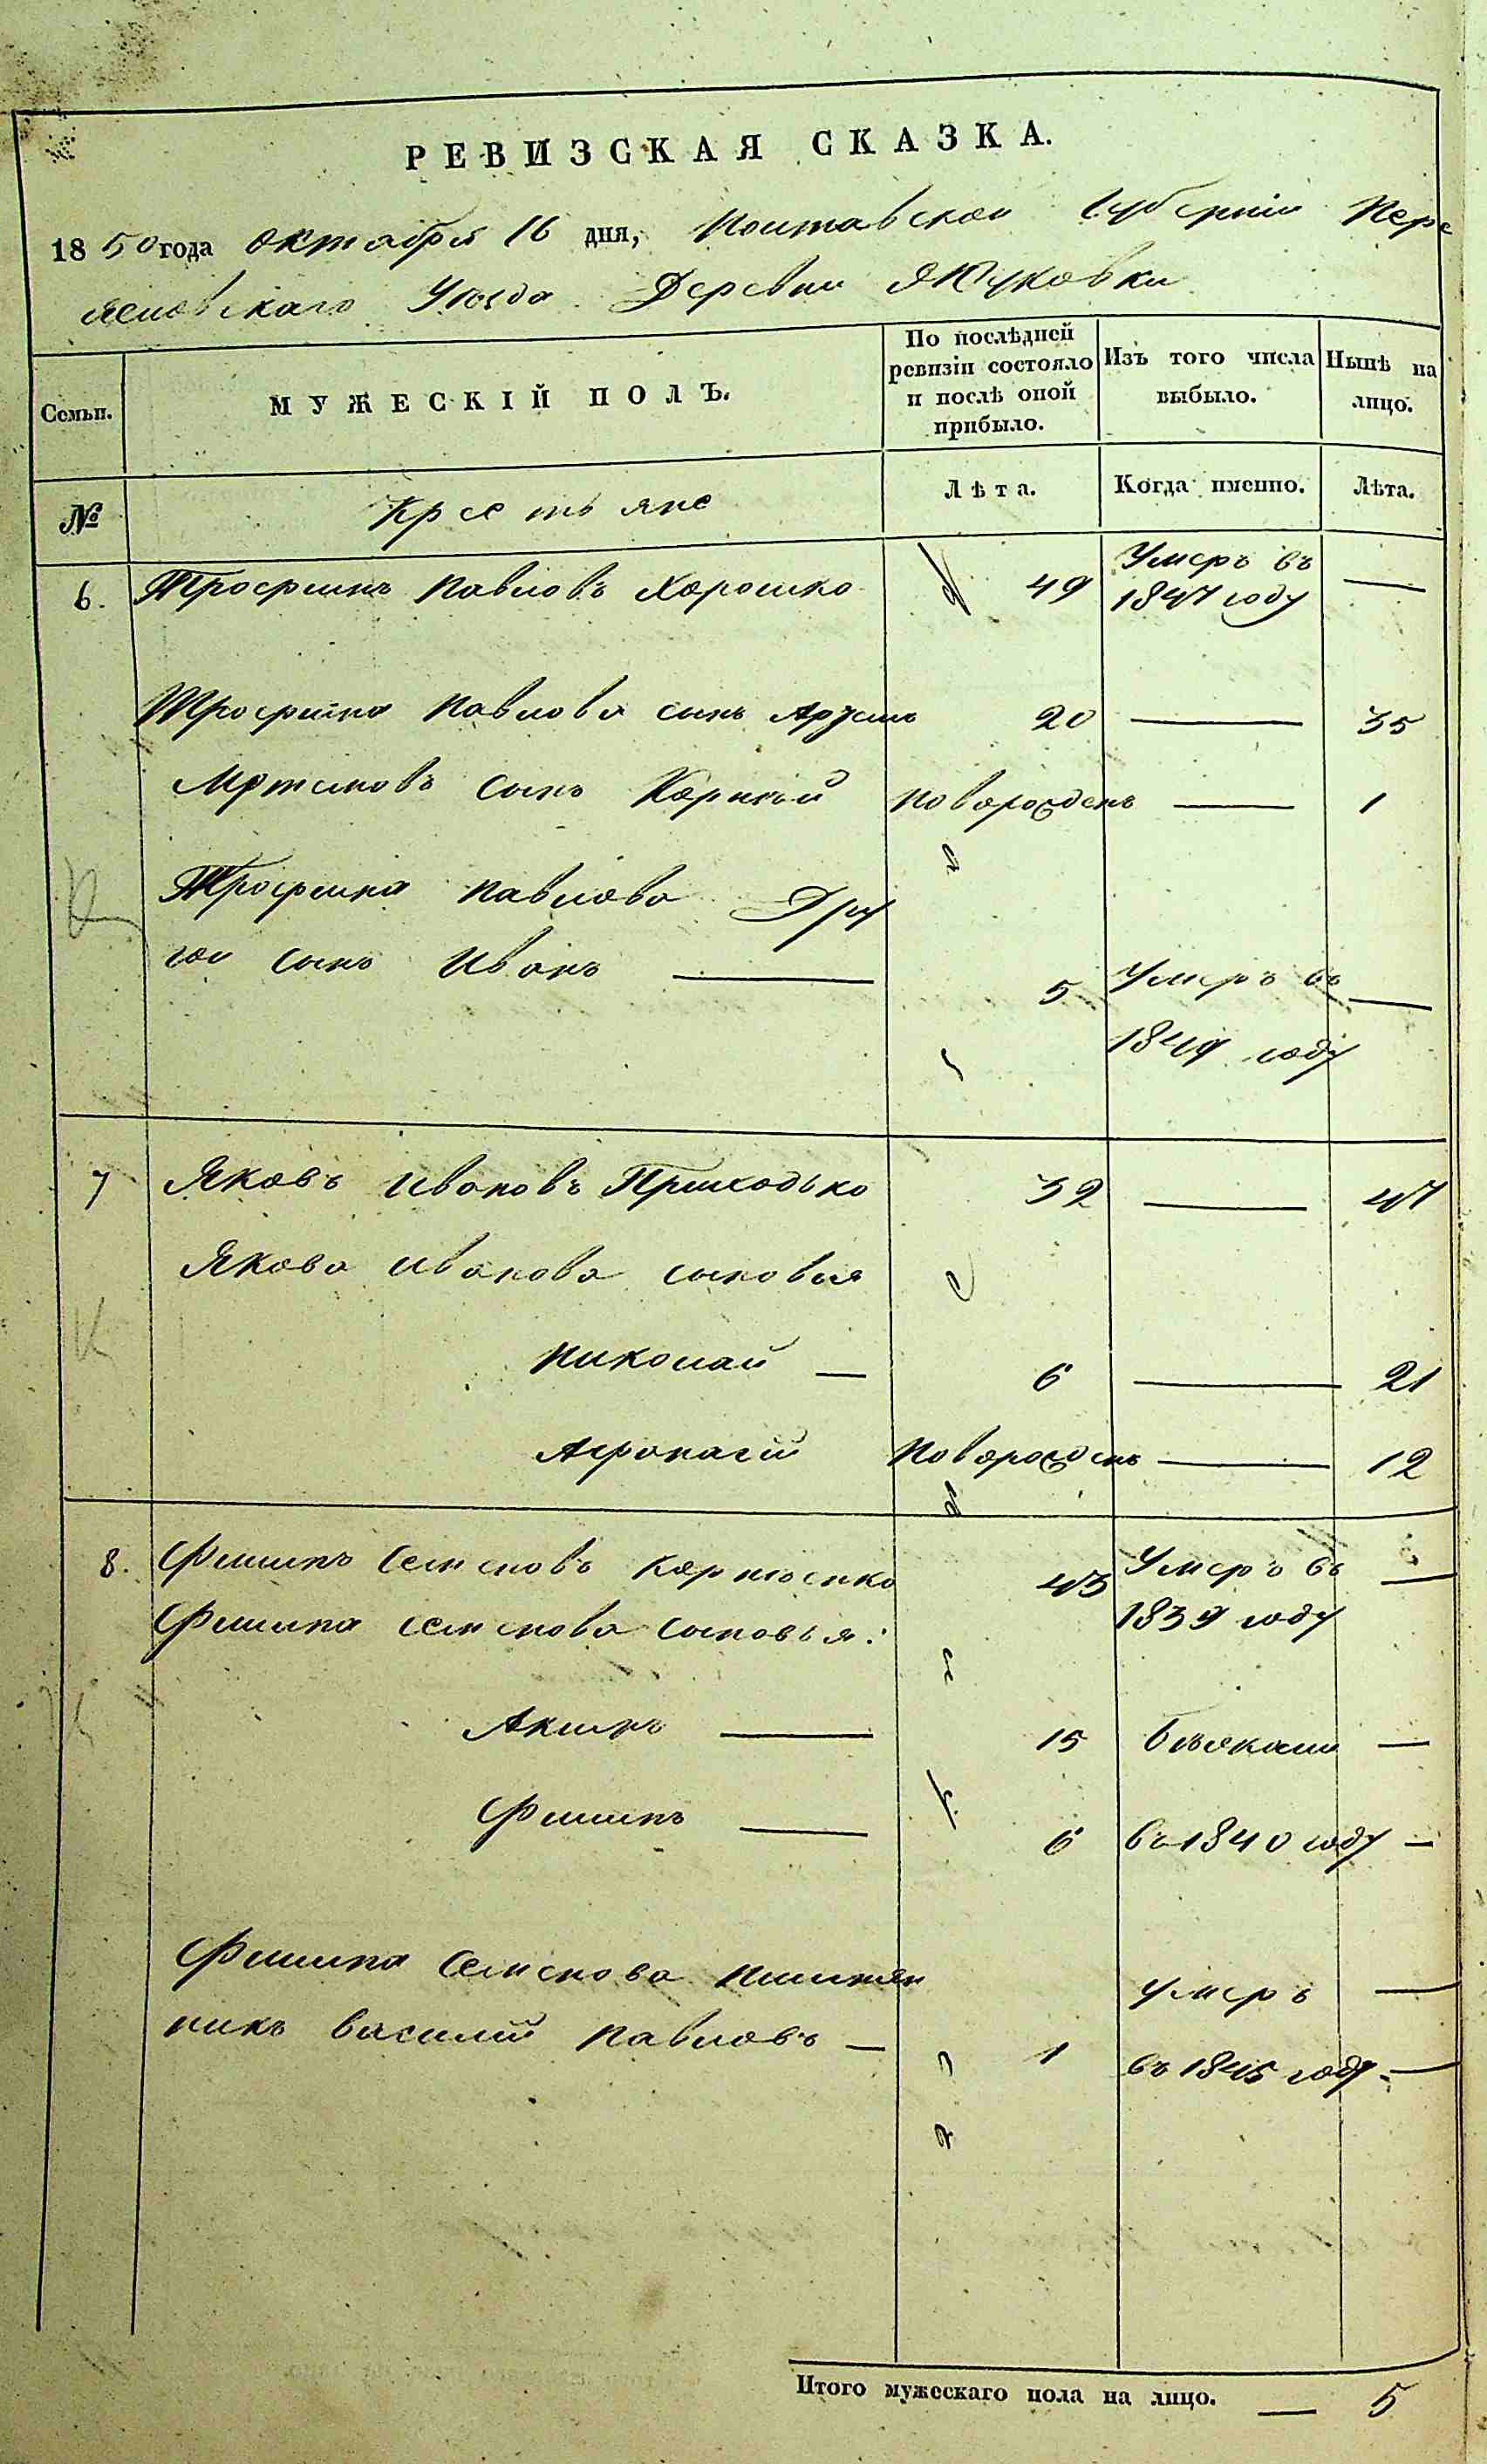 РЕВИЗСКАЯ СКАЗКА.
1850 года Октября 16 дня, Полтавской Губернiи Пере
яславскаго Уѣзда Деревни
Семьи.
МУЖЕСКІЙ ПОЛЪ.
По послѣдней ревизіи состояло и послѣ оной прибыло.
Изъ того числа выбыло.
Нынѣ на лицо.
№
Крестьяне
Лѣта.
Когда именно.
Лѣта.
6. Трофимъ Павловъ Хорошко 49 Умеръ въ —
1847 году
Трофима Павлова сынъ 20 — 35
сынъ Корнѣй новорожденъ — 1
Трофима Павлова Дру
гои сынъ Иванъ — 5 Умеръ въ —
1849 году
7 Яковъ Ивановъ Приходько 32 — 47
Якова Иванова сыновья
Николай — 6 — 21
Афонасiй новорожденъ — 12
8. Филипъ Семеновъ Корнюенко 43 Умеръ въ —
1839 году
Филипа Семенова Сыновья:
Акимъ — 15 бѣжали —
Филипъ — 6 въ 1840 году —
Филипа Семенова
никъ Василiй Павловъ — 1 умеръ —
въ 1845 году. —
Итого мужескаго пола на лицо. — 5